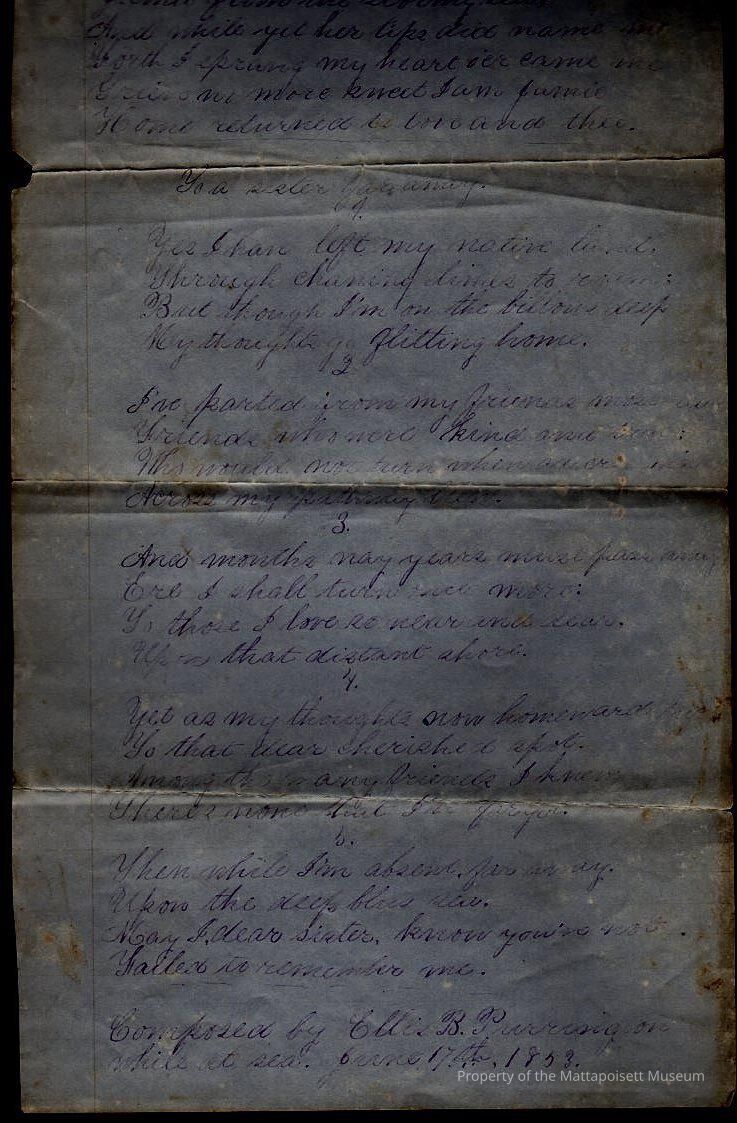 And while yet her lips did name me
Forth I sprung my heart o'er came me
Grieve no more sweet I am Jamie
Home returned to love and thee.
To a sister far away.
1.
Yes I have left my native land.
Through chaning climes to roam:
But though I'm on the billows deep
My thoughts go flitting home.
2
I've parted from my friends most
Friends who were kind and
Who would not turn when
Across my pathway
3.
And months nay years must pass away
Ere I shall turn once more:
To those I love so near and dear.
Upon that distant shore.
4.
Yet as my thoughts now homeward
To that dear cherished spot.
Among the many friends I knew
There's none that I've forgot.
5.
Then while I'm absent, far away.
Upon the deep blue sea.
May I, dear sister, know you've not.
Failed to remember me.
Composed by Ellis B. Purrington
while at sea. June 17th, 1853.
Property of the Mattapoisett Museum